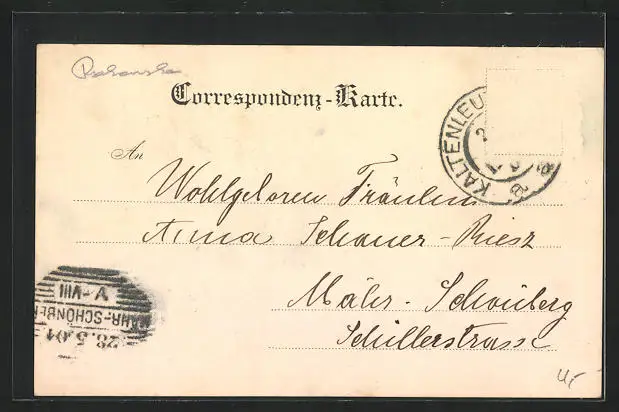 Correspondenz-Karte.
KALTENLEU
An
Wohlgeboren Fräulein
Anna Schauer-Riesz
Mähr. Schönberg
Schillerstrasse
V-VIII
MÄHR-SCHÖNBE
28.5.01